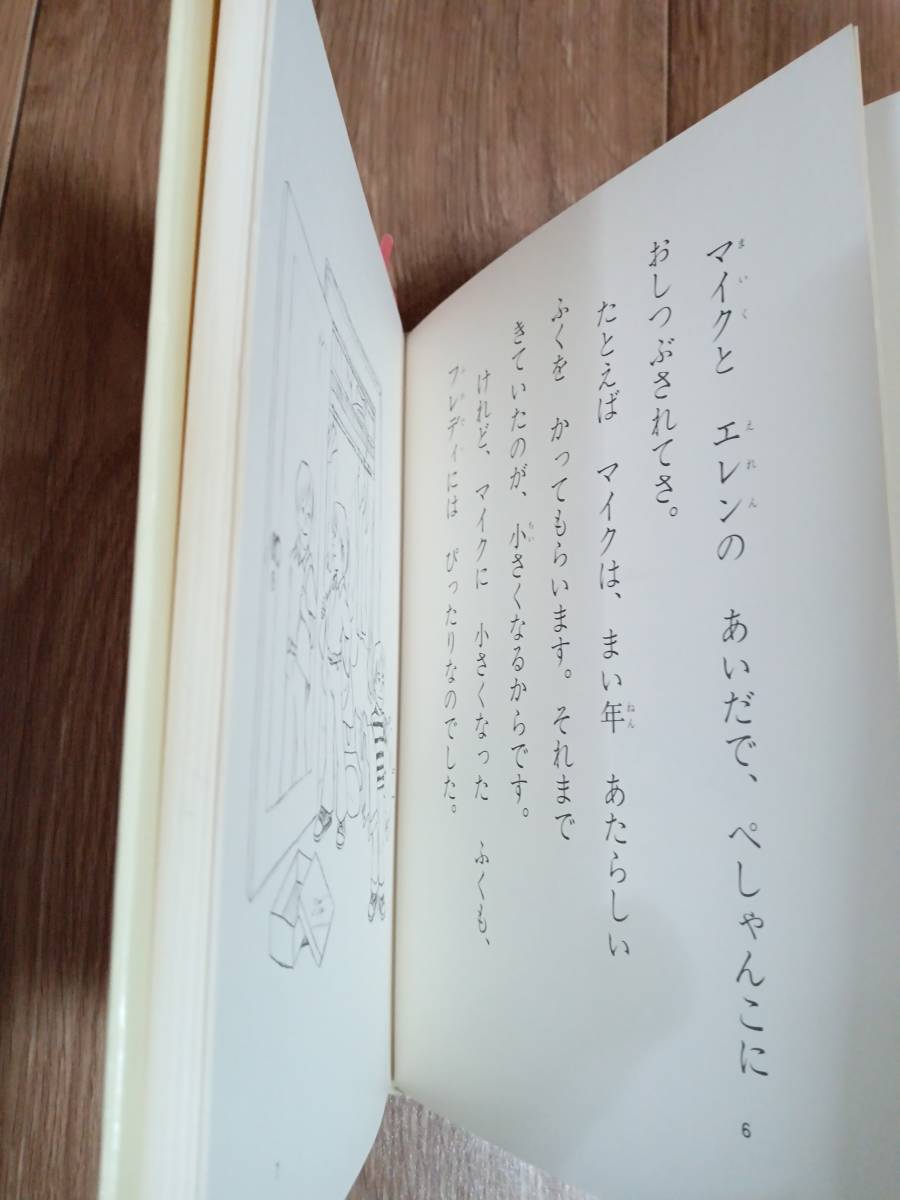 マイクと エレンの あいだで、ぺしゃんこに
おしつぶされてさ。
たとえば マイクは、まい年 あたらしい
ふくを かってもらいます。それまで
きていたのが、小さくなるからです。
けれど、マイクに 小さくなった ふくも、
フレディには ぴったりなのでした。
6